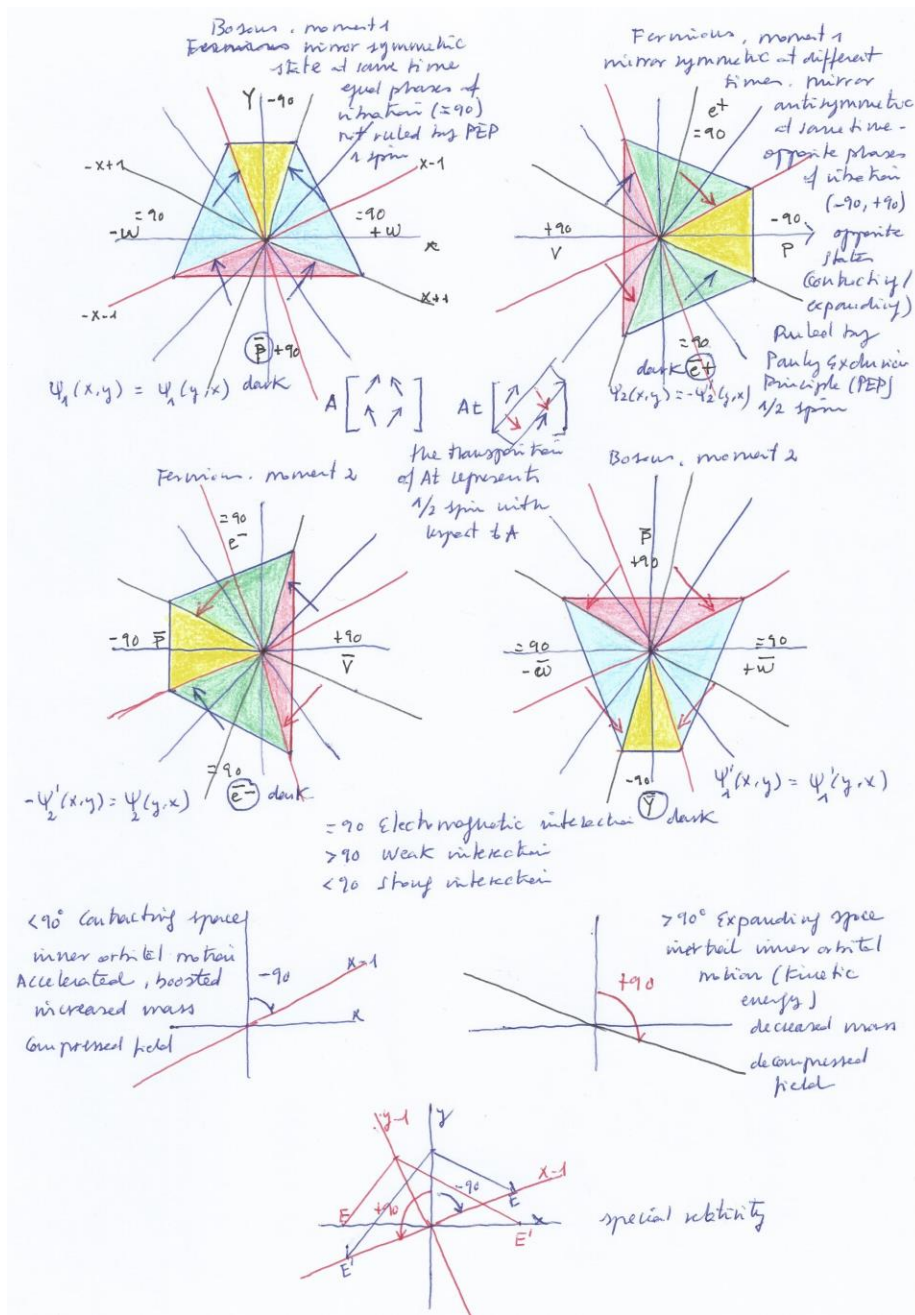 Bosons, moment 1
Fermions mirror symmetric
state at same time
equal phases of
vibration (=90)
not ruled by PEP
1 spin
Y
-90
-x+1
x-1
=90
-W
=90
+W
x
-x-1
x+1
P̅ +90
dark
Ψ1(x,y) = Ψ1(y,x)
Fermions, moment 1
mirror symmetric at different
times. mirror
antisymmetric
at same time -
opposite phases
of vibration
(-90, +90)
opposite
states
(contracting/
expanding)
Ruled by
Pauly Exclusion
Principle (PEP)
1/2 spin
e+
=90
+90
V
-90
P
=90
dark e̅+
Ψ2(x,y) = -Ψ2(y,x)
A
At
the transposition
of At represents
1/2 spin with
respect to A
Fermions. moment 2
=90
e-
-90 P̅
+90
V̅
=90
e̅- dark
-Ψ'2(x,y) = Ψ2(y,x)
Bosons, moment 2
P̅
+90
=90
-W̅
=90
+W̅
-90
Y̅ dark
Ψ'1(x,y) = Ψ'1(y,x)
=90 Electromagnetic interaction
>90 weak interaction
<90 strong interaction
<90° Contracting space
inner orbital motion
Accelerated, boosted
increased mass
Compressed field
-90
x-1
x
>90° Expanding space
inertial inner orbital
motion (kinetic
energy)
decreased mass
decompressed
field
+90
y-1
y
x-1
+90
-90
E
E
x
E'
E'
special relativity